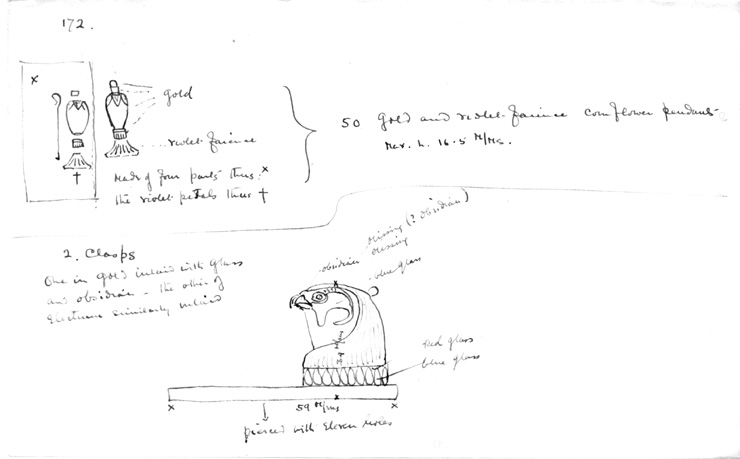 172.
×
gold
violet faience
Made of four parts thus ×
the violet petals thus †
†
50 gold and violet faience cornflower pendants
Max. L. 16.5 M/MS.
2. Clasps
One in gold inlaid with glass
and obsidian – the other of
Electrum similarly inlaid
missing (? obsidian)
obsidian missing
blue glass
×
red glass
blue glass
M/ms
×
59 M/ms
×
×
pierced with eleven holes